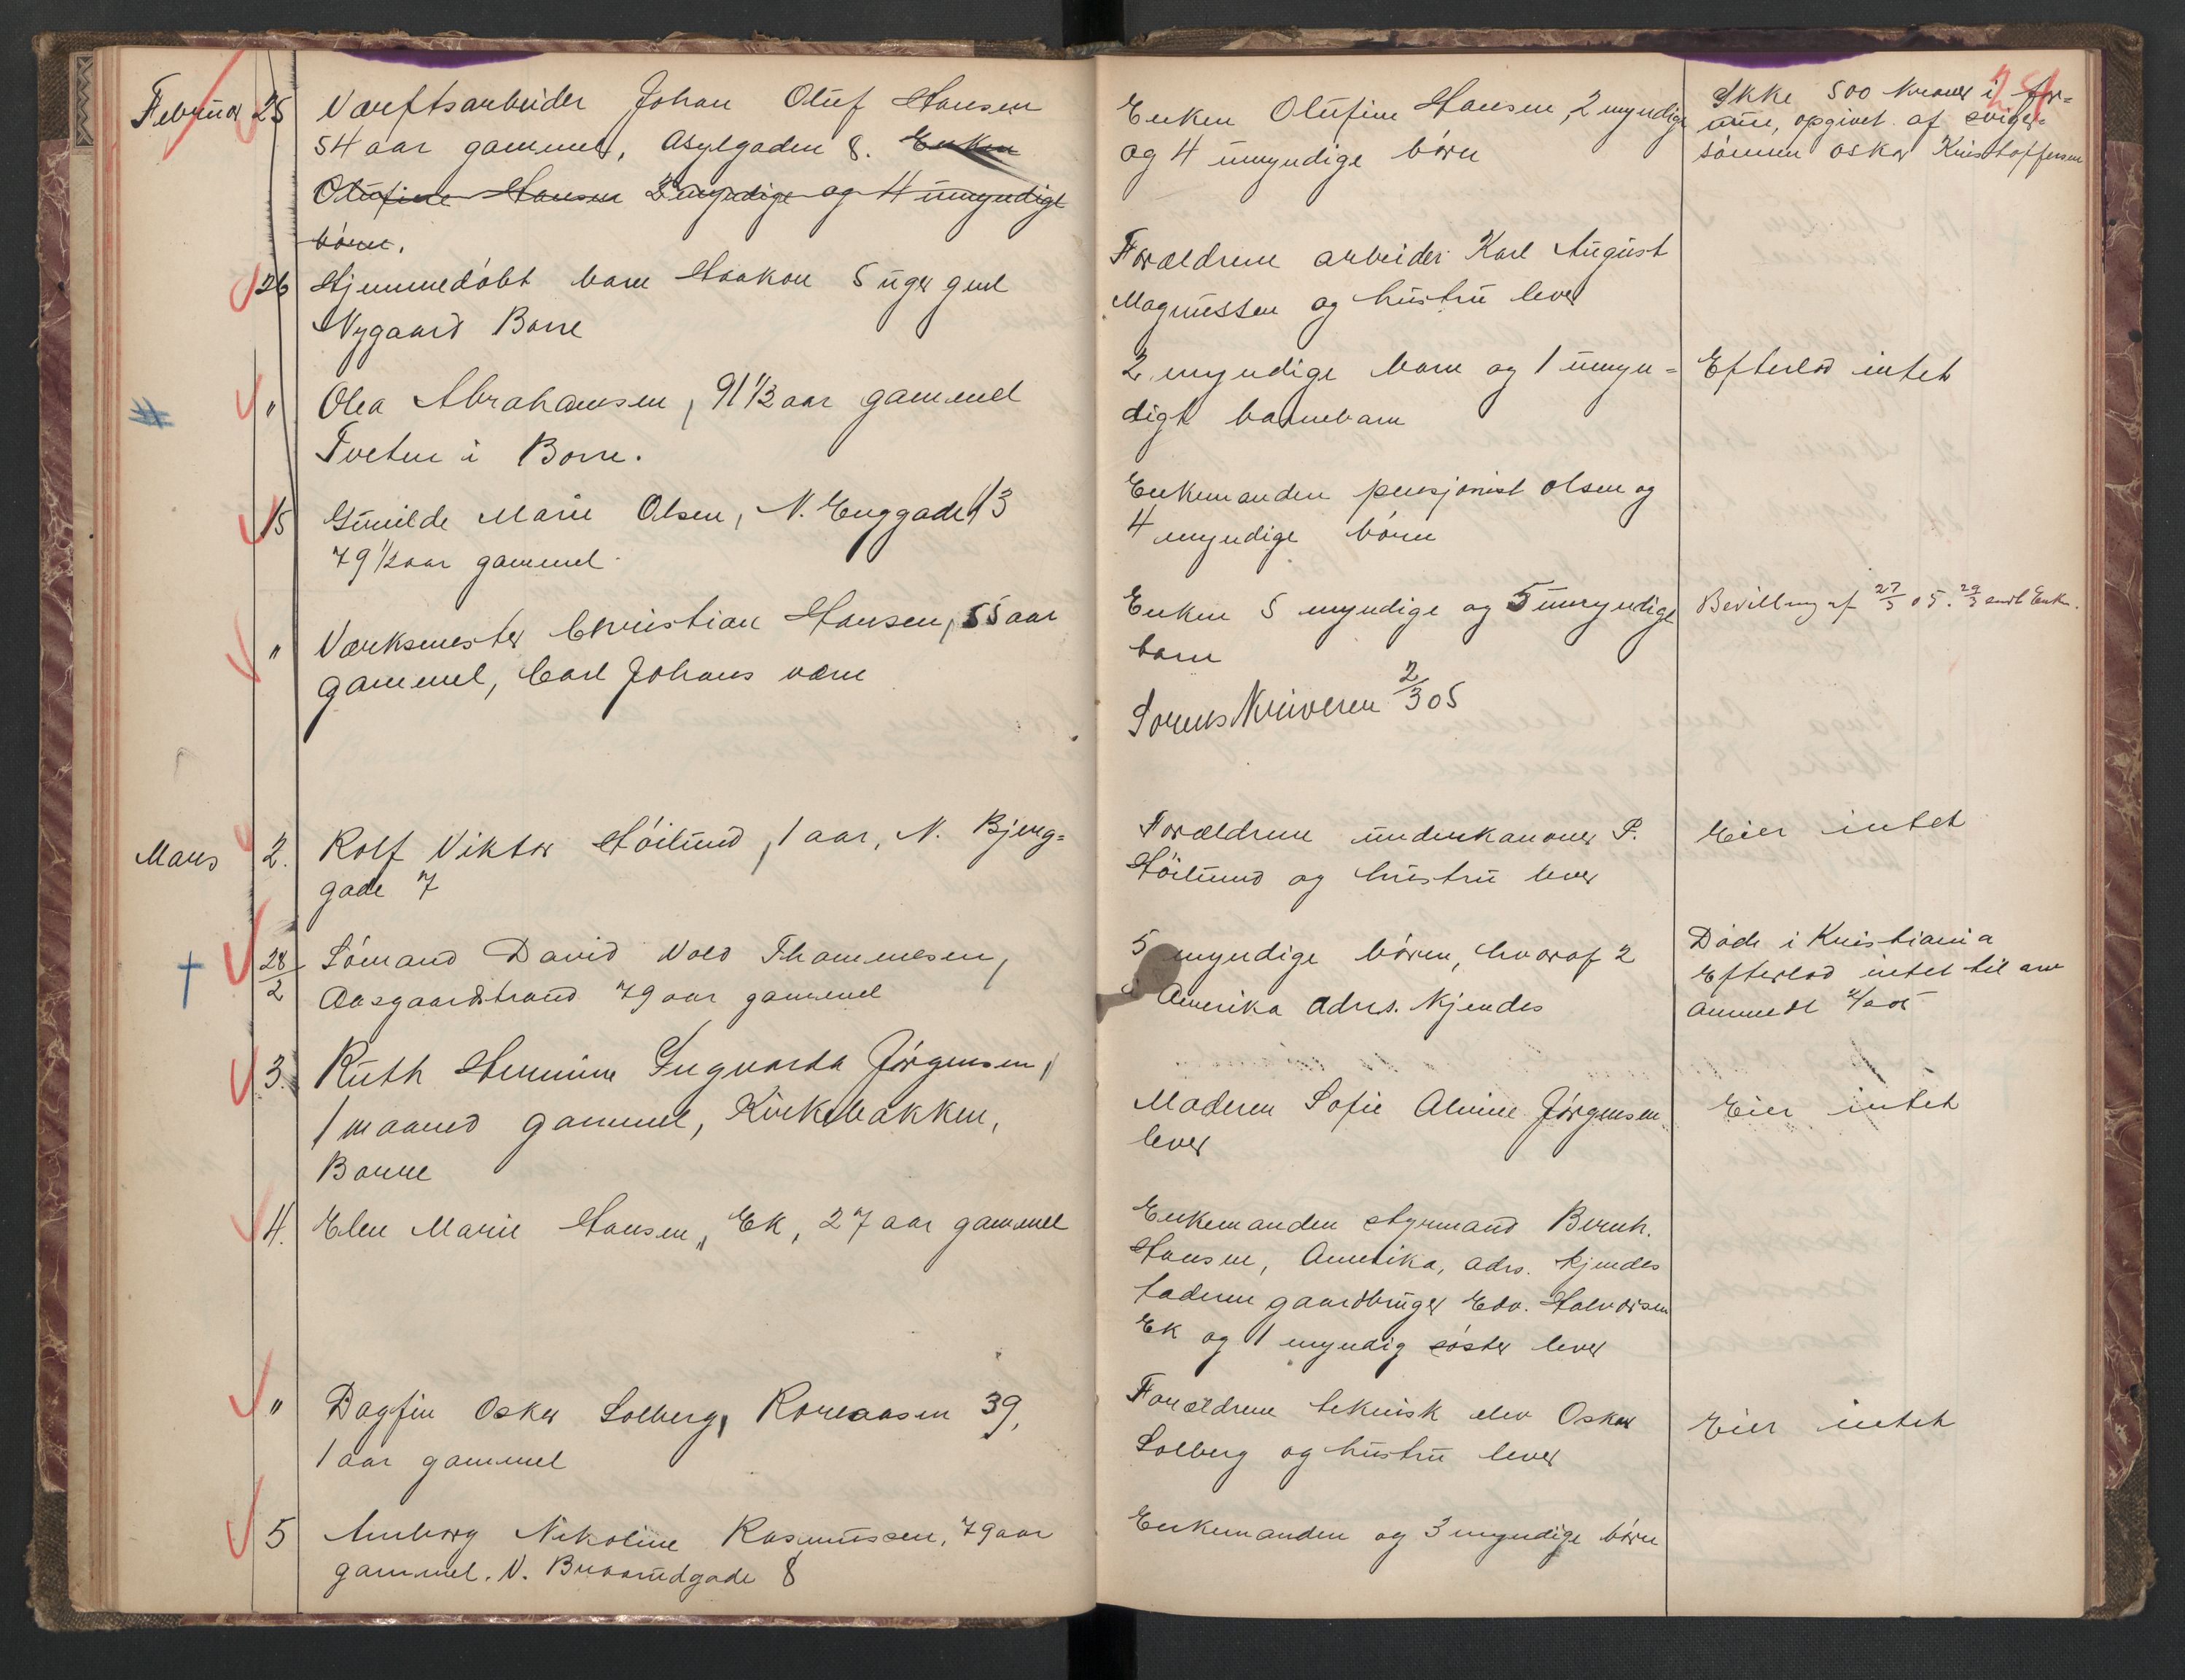 Februar 25 Værftsarbeider Johan Oluf Hansen
54 aar gammel, Asylgaden 8. Enken
Olufine Hansen 2 myndige og 4 umyndige
börn.
Enken Olufine Hansen, 2 myndige
og 4 umyndige börn
Ikke 500 kroner i for-
mue, opgivet af sviger-
sönnen Oskar Kristoffersen
26 Hjemmedöbt barn Haakon 5 uger gml
Nygaard Borre
Forældrene arbeider Karl August
Magnussen og hustru lever
" Olea Abrahamsen, 91 1/2 aar gammel
Tveten i Borre.
2 myndige barn og 1 umyn-
digt barnebarn
Efterlod intet
15 Gunilde Marie Olsen, N. Enggade 13
79 1/2 aar gammel
Enkemanden pensjonist Olsen og
4 myndige börn
" Værksmester Christian Hansen, 55 aar
gammel, Carl Johans værn
Enken 5 myndige og 5 umyndige
barn
Bevilling af 27/3 05. 29/3 sendt Enken.
Sorenskriveren 2/3 05
Mars 2. Rolf Viktor Höilund, 1 aar, N. Bjerg-
gade 7
Forældrene underkanoner P.
Höilund og hustru lever
Eier intet
28/2 Sömand David Vold Thammesen,
Aasgaardstrand 79 aar gammel
5 myndige börn, hvoraf 2
i Amerika adrs. kjendes
Döde i Kristiania
Efterlod intet til
anmeldt
3. Ruth Hermine Ingvarda Jörgensen,
1 maaned gammel, Kirkebakken,
Borre
Moderen Sofie Alvine Jörgensen
lever
Eier intet
4. Elen Marie Hansen, Ek, 27 aar gammel
Enkemanden styrmand Bernh.
Hansen, Amerika, adrs. kjendes
faderen gaardbruger Edv. Halvorsen
Ek og 1 myndig söster lever
" Dagfin Oskar Solberg, Roreaasen 39,
1 aar gammel
Forældrene teknisk elev Oskar
Solberg og hustru lever
Eier intet
5 Anborg Nikoline Rasmussen, 79 aar
gammel. N. Braarudgade 8
Enkemanden og 3 myndige börn